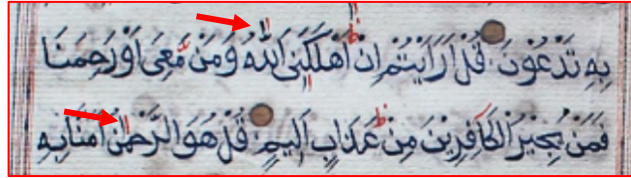 بِهِ تَدَّعُونَ قُلْ أَرَأَيْتُمْ إِنْ أَهْلَكَنِيَ اللَّهُ وَمَن مَّعِيَ أَوْ رَحِمَنَا
فَمَن يُجِيرُ الْكَافِرِينَ مِنْ عَذَابٍ أَلِيمٍ قُلْ هُوَ الرَّحْمَٰنُ آمَنَّا بِهِ